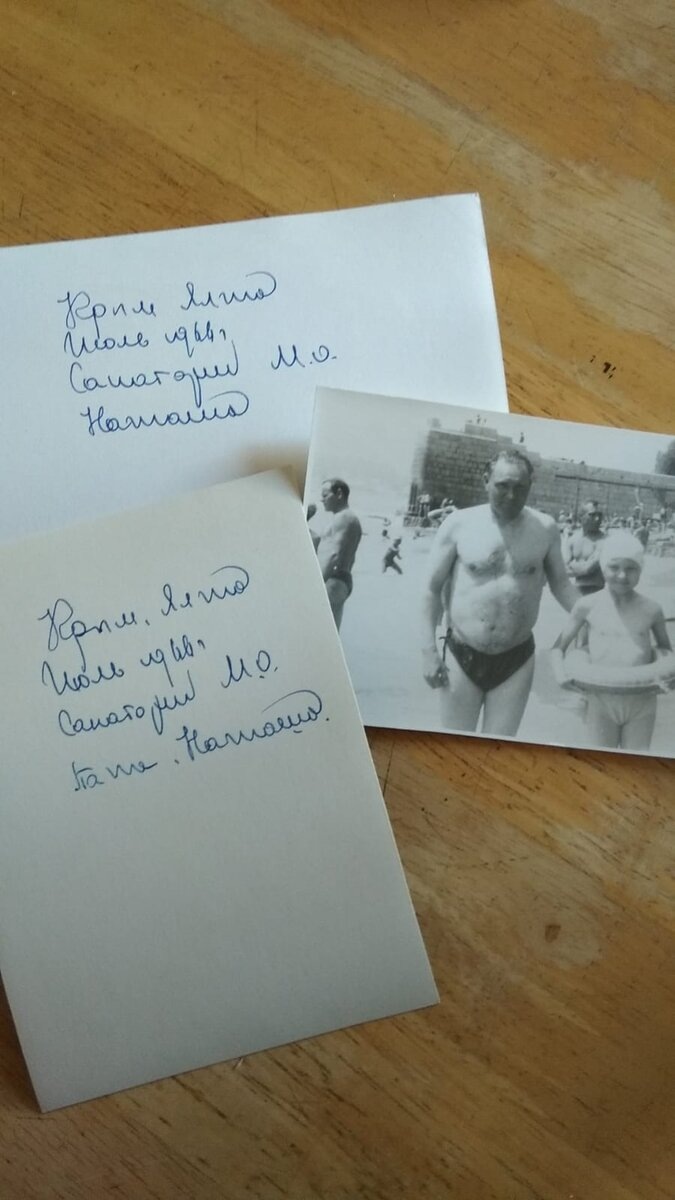 Крым Ялта
Июль 1966г,
Санаторий М.О.
Наташа
Крым, Ялта
Июль 1966г.
Санаторий М.О.
Папа. Наташа.